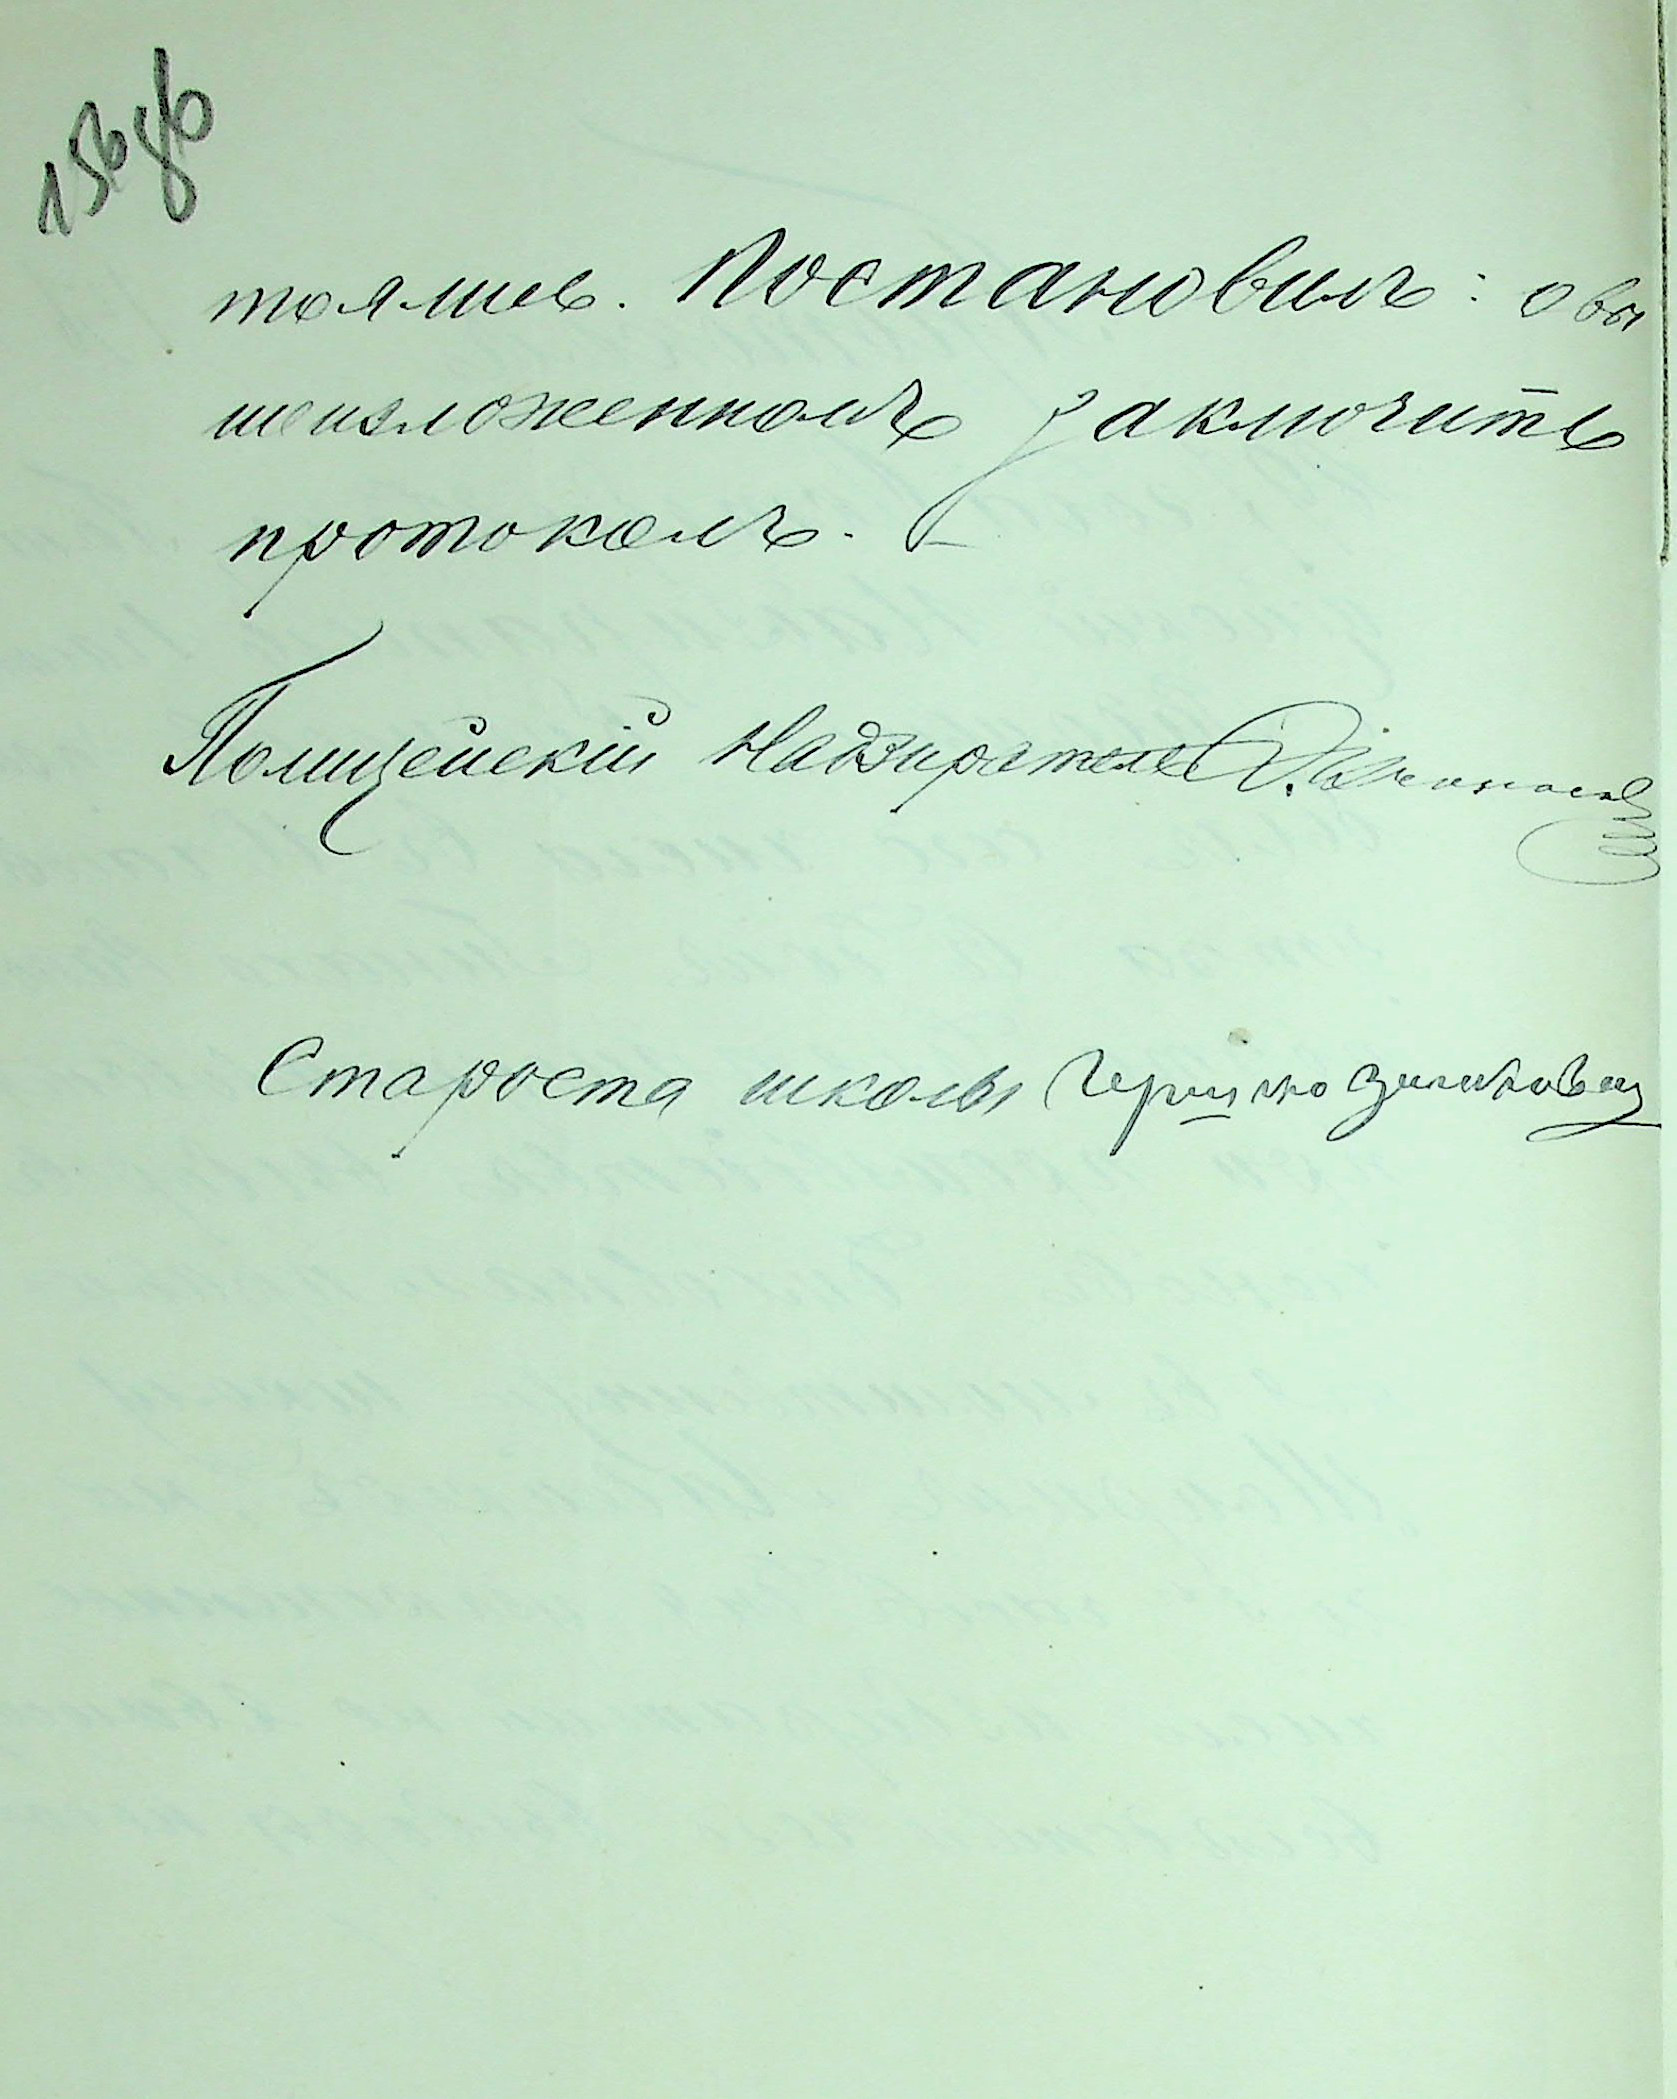 156 об
тоялись. Постановилъ: о вы
шеизложенномъ заключить
протоколъ.
Полицейскій Надзиратель
Староста школы Гершко Зильковец